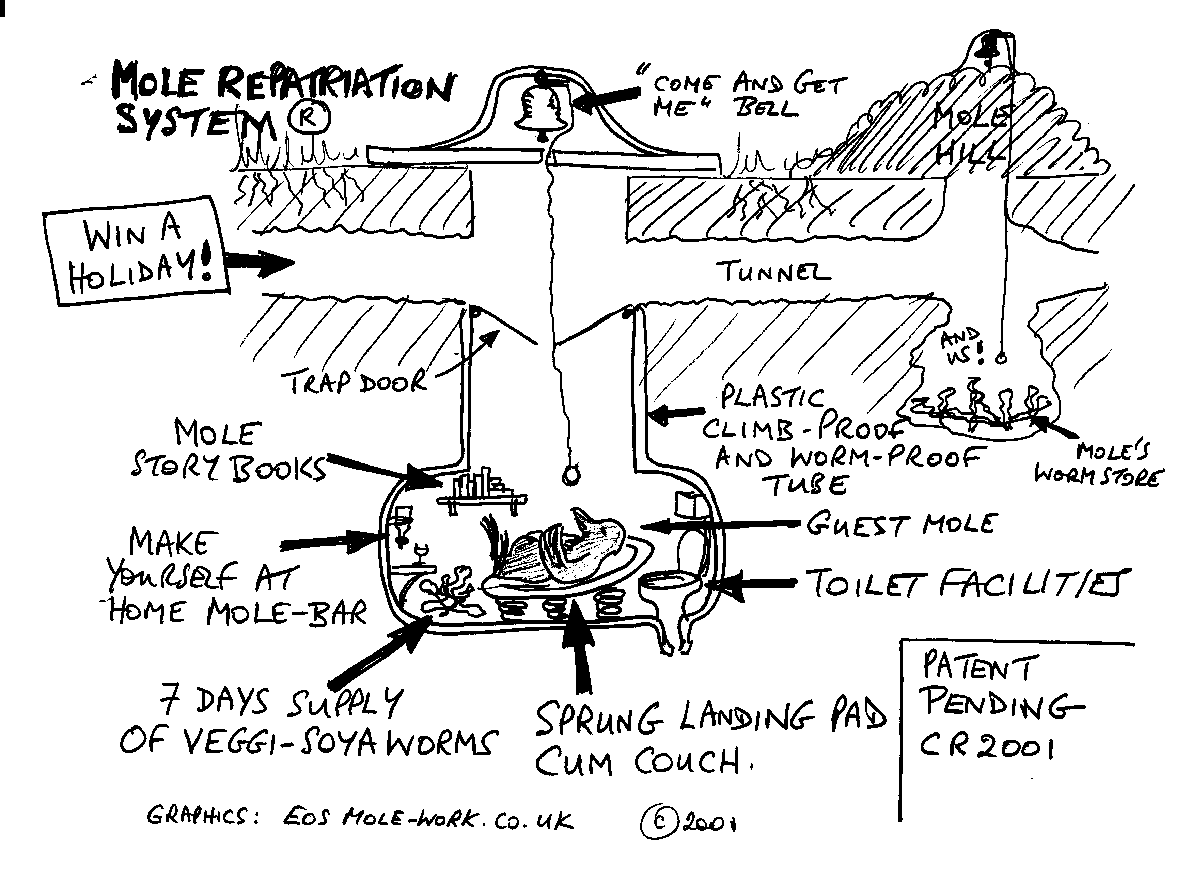 MOLE REPATRIATION
SYSTEM ®
"COME AND GET
ME" BELL
MOLE
HILL
WIN A
HOLIDAY!
TUNNEL
AND
US!
TRAP DOOR
PLASTIC
CLIMB-PROOF
AND WORM-PROOF
TUBE
MOLE'S
WORM STORE
MOLE
STORY BOOKS
GUEST MOLE
MAKE
YOURSELF AT
HOME MOLE-BAR
TOILET FACILITIES
7 DAYS SUPPLY
OF VEGGI-SOYA WORMS
SPRUNG LANDING PAD
CUM COUCH.
PATENT
PENDING
CR2001
GRAPHICS: EOS MOLE-WORK.CO.UK © 2001